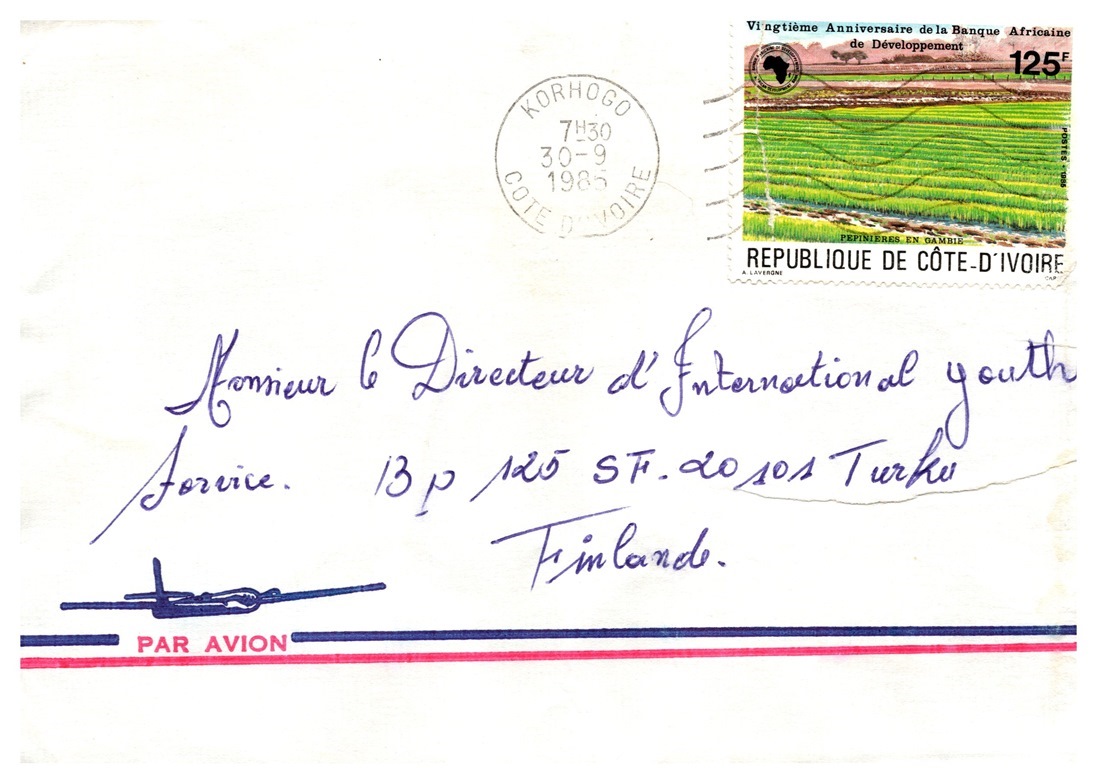 Vingtième Anniversaire de la Banque Africaine
de Développement
125F
POSTES - 1985
PEPINIERES EN GAMBIE
REPUBLIQUE DE CÔTE-D'IVOIRE
A. LAVERGNE
KORHOGO
7H30
30-9
1985
COTE D'IVOIRE
Monsieur le Directeur d'International youth
Service. Bp 125 SF.20101 Turku
Finlande.
PAR AVION